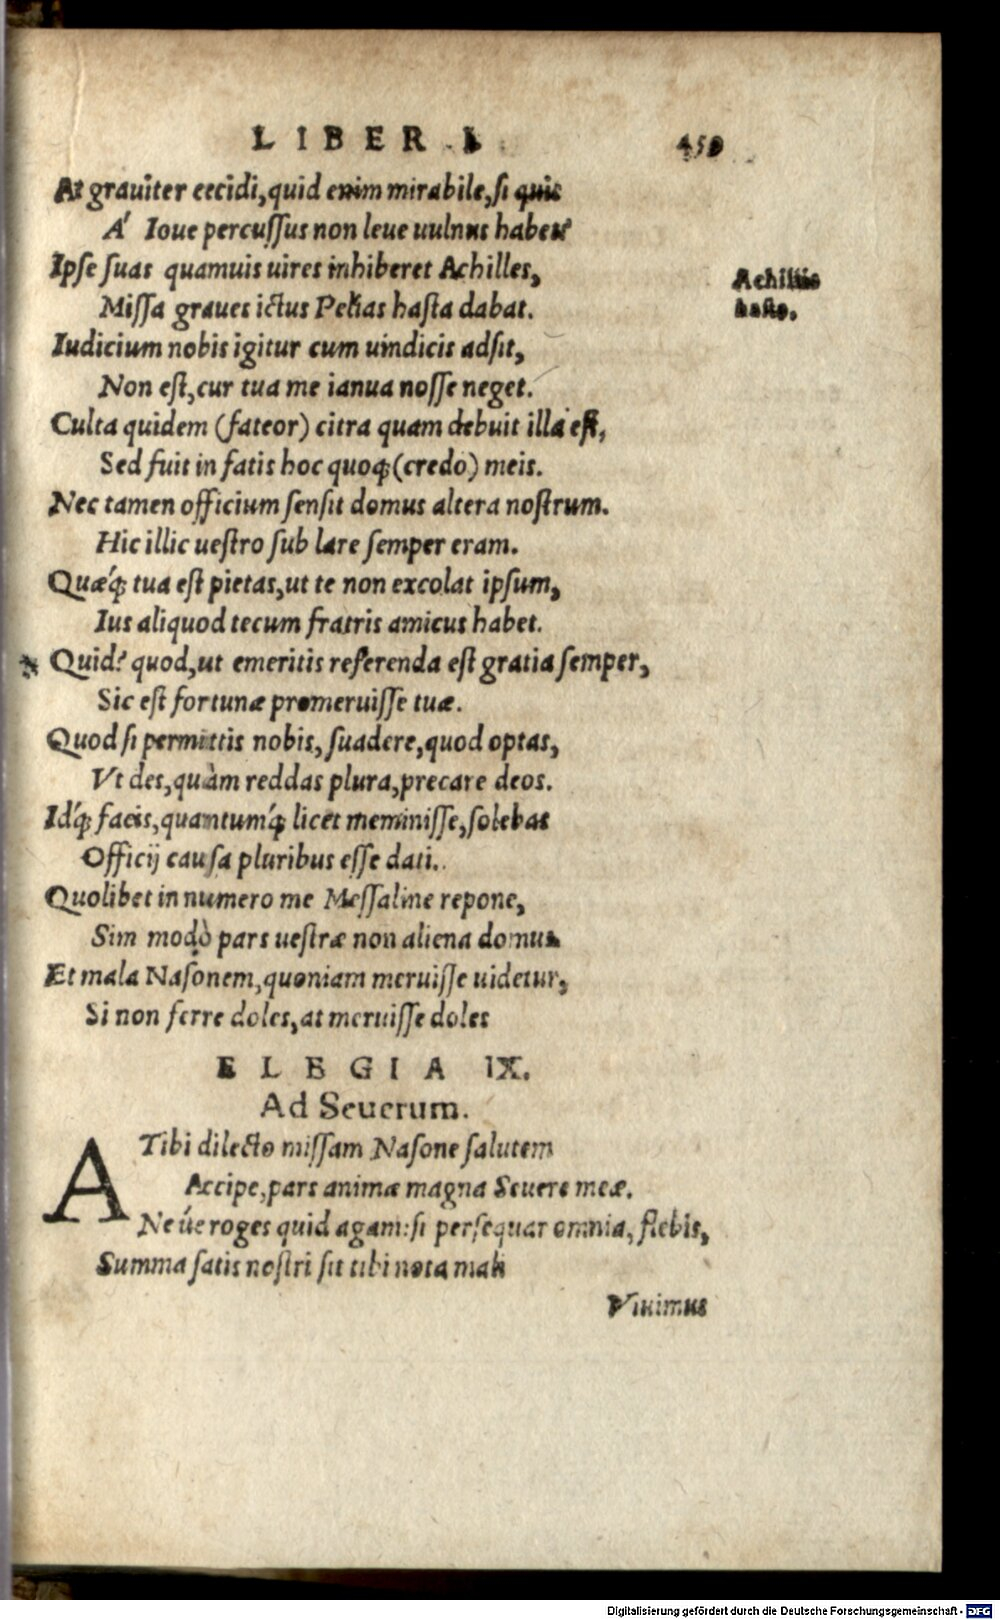 LIBER I. 459
At grauiter cecidi, quid enim mirabile, si quis
A' Ioue percussus non leue uulnus habet?
Ipse suas quamuis uires inhiberet Achilles,
Missa graues ictus Pelias hasta dabat.
Achillis
hasta.
Iudicium nobis igitur cum uindicis adsit,
Non est, cur tua me ianua nosse neget.
Culta quidem (fateor) citra quam debuit illa est,
Sed fuit in fatis hoc quoq; (credo) meis.
Nec tamen officium sensit domus altera nostrum.
Hic illic uestro sub lare semper eram.
Quæq́; tua est pietas, ut te non excolat ipsum,
Ius aliquod tecum fratris amicus habet.
* Quid? quod, ut emeritis referenda est gratia semper,
Sic est fortunæ promeruisse tuæ.
Quod si permittis nobis, suadere, quod optas,
Vt des, quàm reddas plura, precare deos.
Idq́; facis, quantumq́; licet meminisse, solebas
Officij causa pluribus esse dati.
Quolibet in numero me Messaline repone,
Sim modò pars uestræ non aliena domus
Et mala Nasonem, quoniam meruisse uidetur,
Si non ferre doles, at meruisse doles
ELEGIA IX.
Ad Seuerum.
A Tibi dilecto missam Nasone salutem
Accipe, pars animæ magna Seuere meæ.
Neúe roges quid agam: si persequar omnia, flebis,
Summa satis nostri sit tibi nota mali
Viuimus
Digitalisierung gefördert durch die Deutsche Forschungsgemeinschaft - DFG